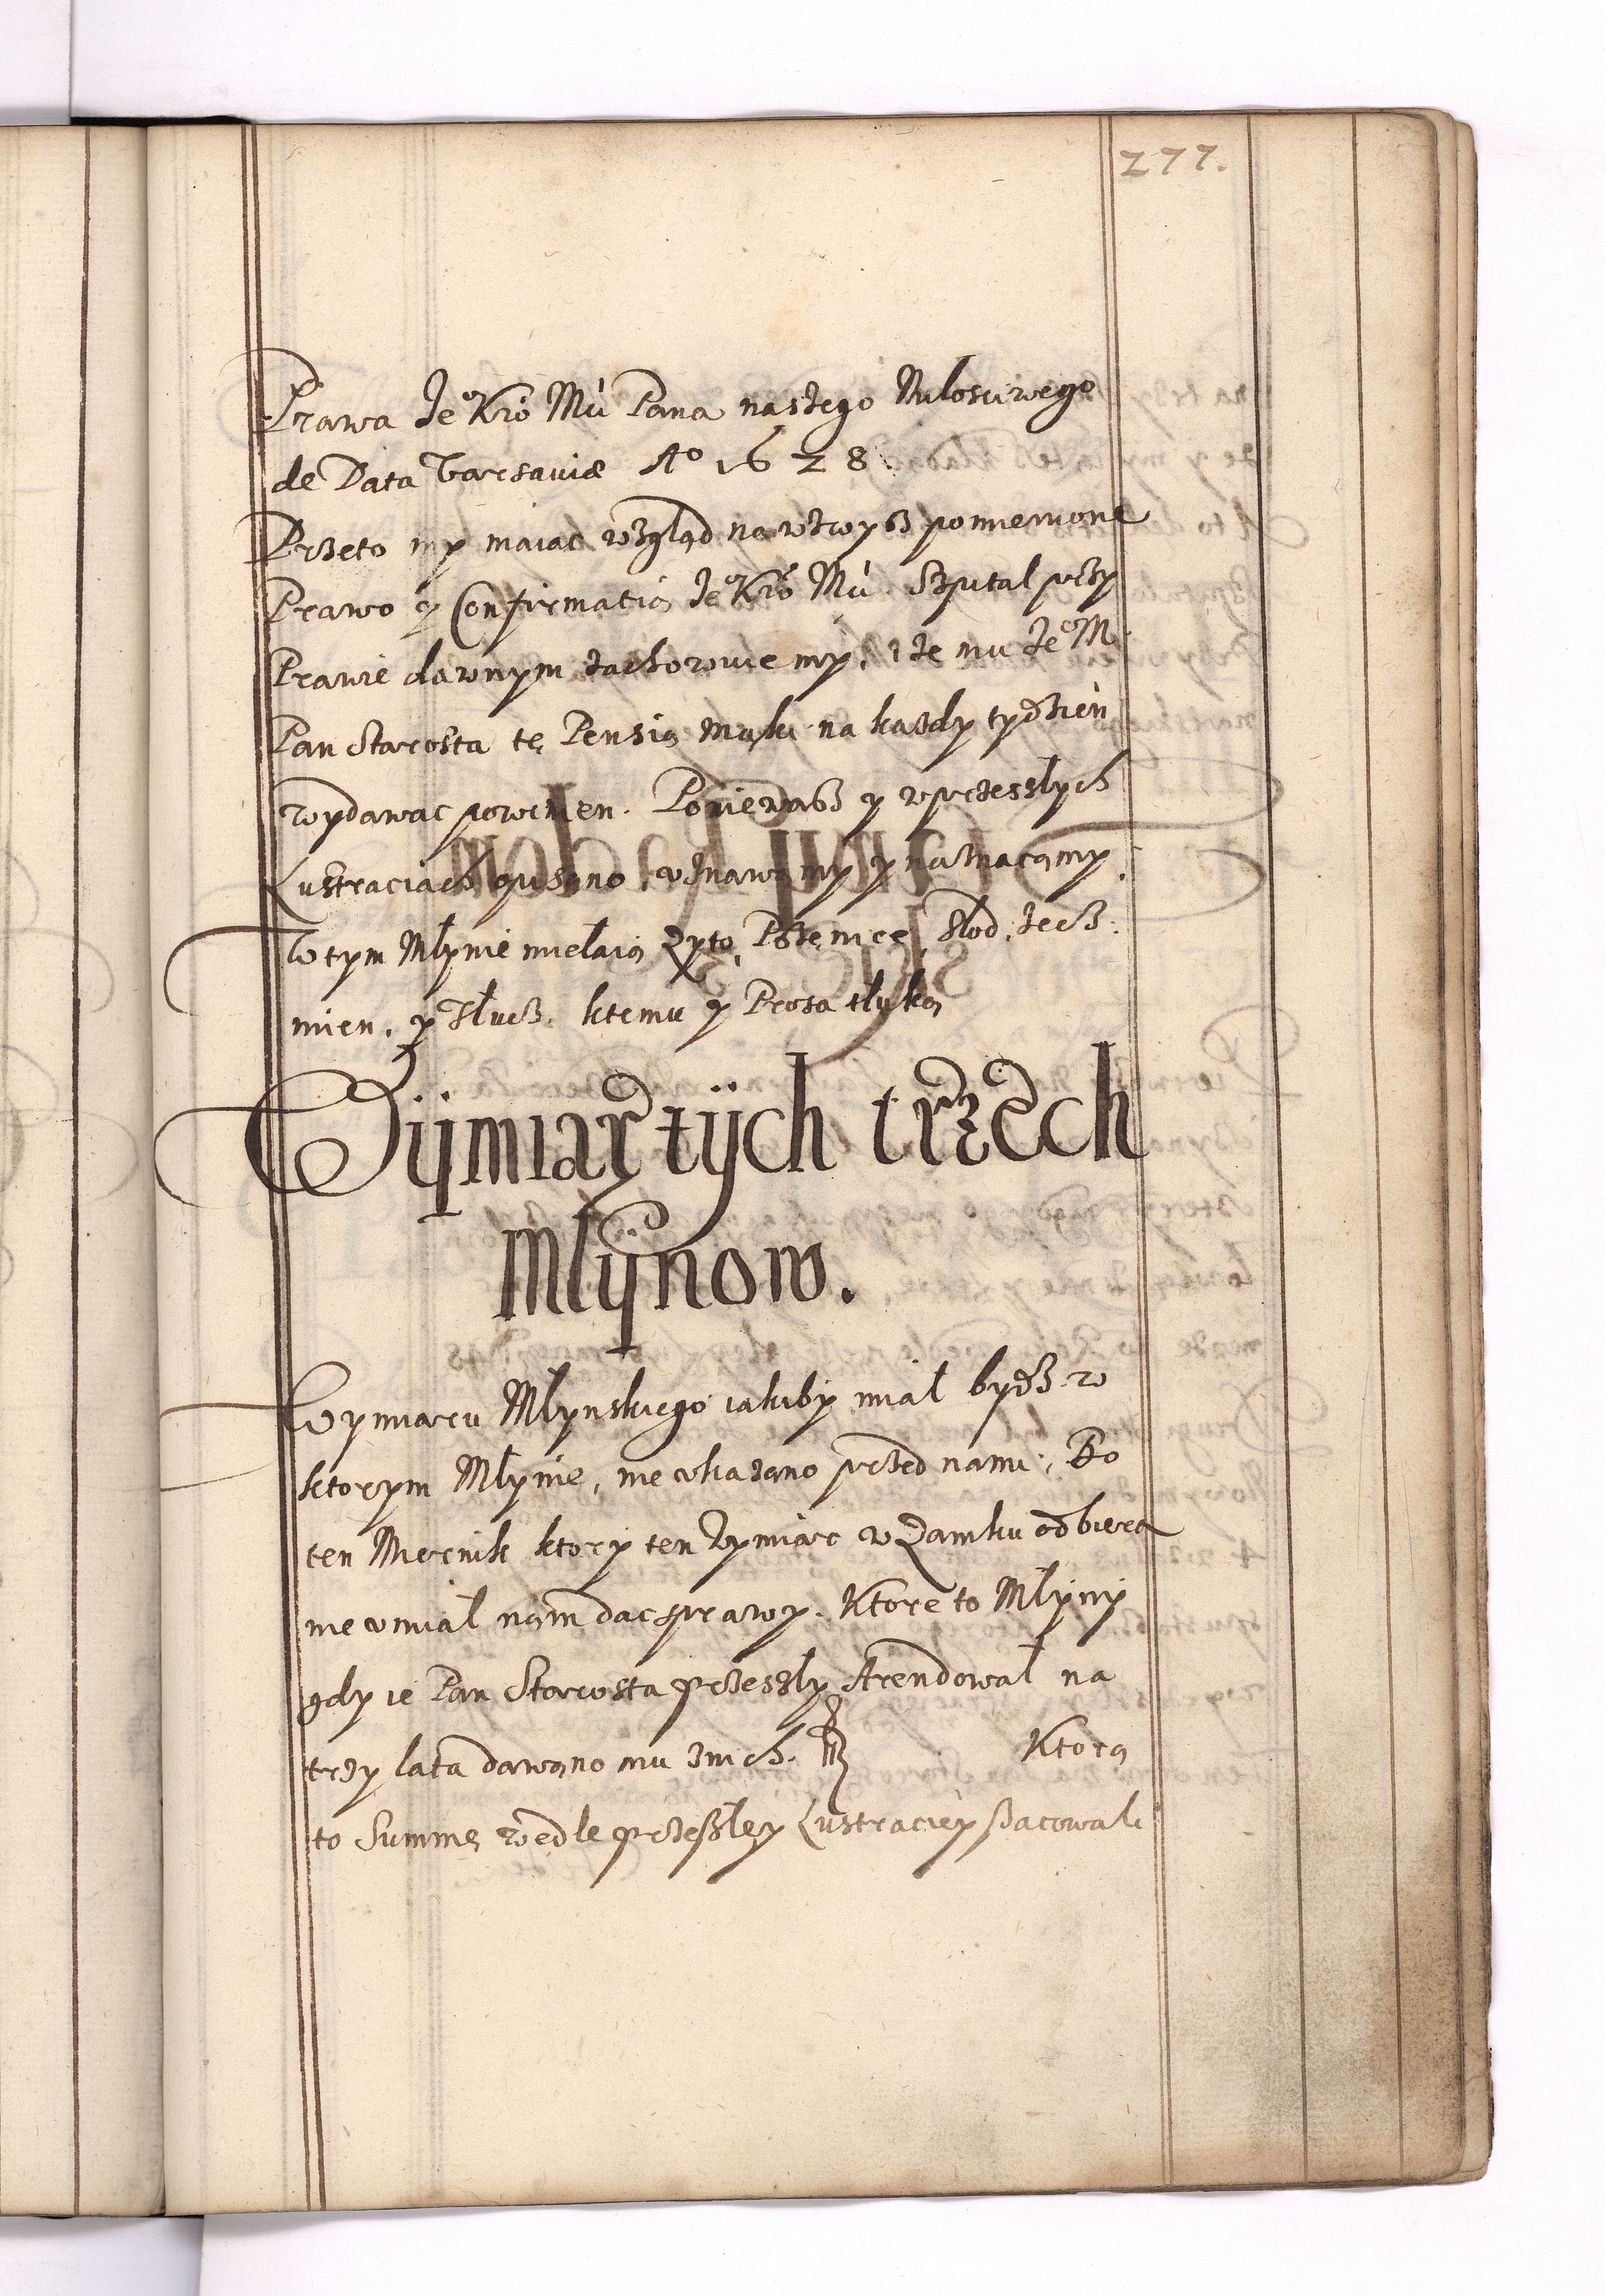 277.
Prawa Je° Kró Mći Pana naszego Miłosciwego
de Data Varsaviæ A° 1628.
Przeto my maiąc wzgląd na wzwysz pomienione
Prawo y Confirmatią Je° Kró Mći Szpital przy
Prawie dawnym zachorowuie my, ize mu Je° M
Pan Starosta tę Pensią mąki na kazdy tydzień
wydawac powinien. Poniewasz y wprzesslych
Lustraciach opisano, uznawamy y naznacząmy.
W tym Młynie mielaią Zyto, Pszenicę, Słod, Jecz:
mien, y Tłucz. ktemu y Prosa tłuką
Wymiar tych trzech
Młynow.
Wymiaru Młynskiego iakiby miał bydz w
ktorym Młynie, nie ukazano przed nami, Bo
ten Miernik ktory ten Wymiar w Zamku odbiera
nie umiał nąm dac sprawy. Ktore to Młyny
gdy ie Pan Starosta przeszły Arendował na
trzy lata dawano mu znich. Ktorą
to Summę wedle przeszłey Lustraciey szacowali